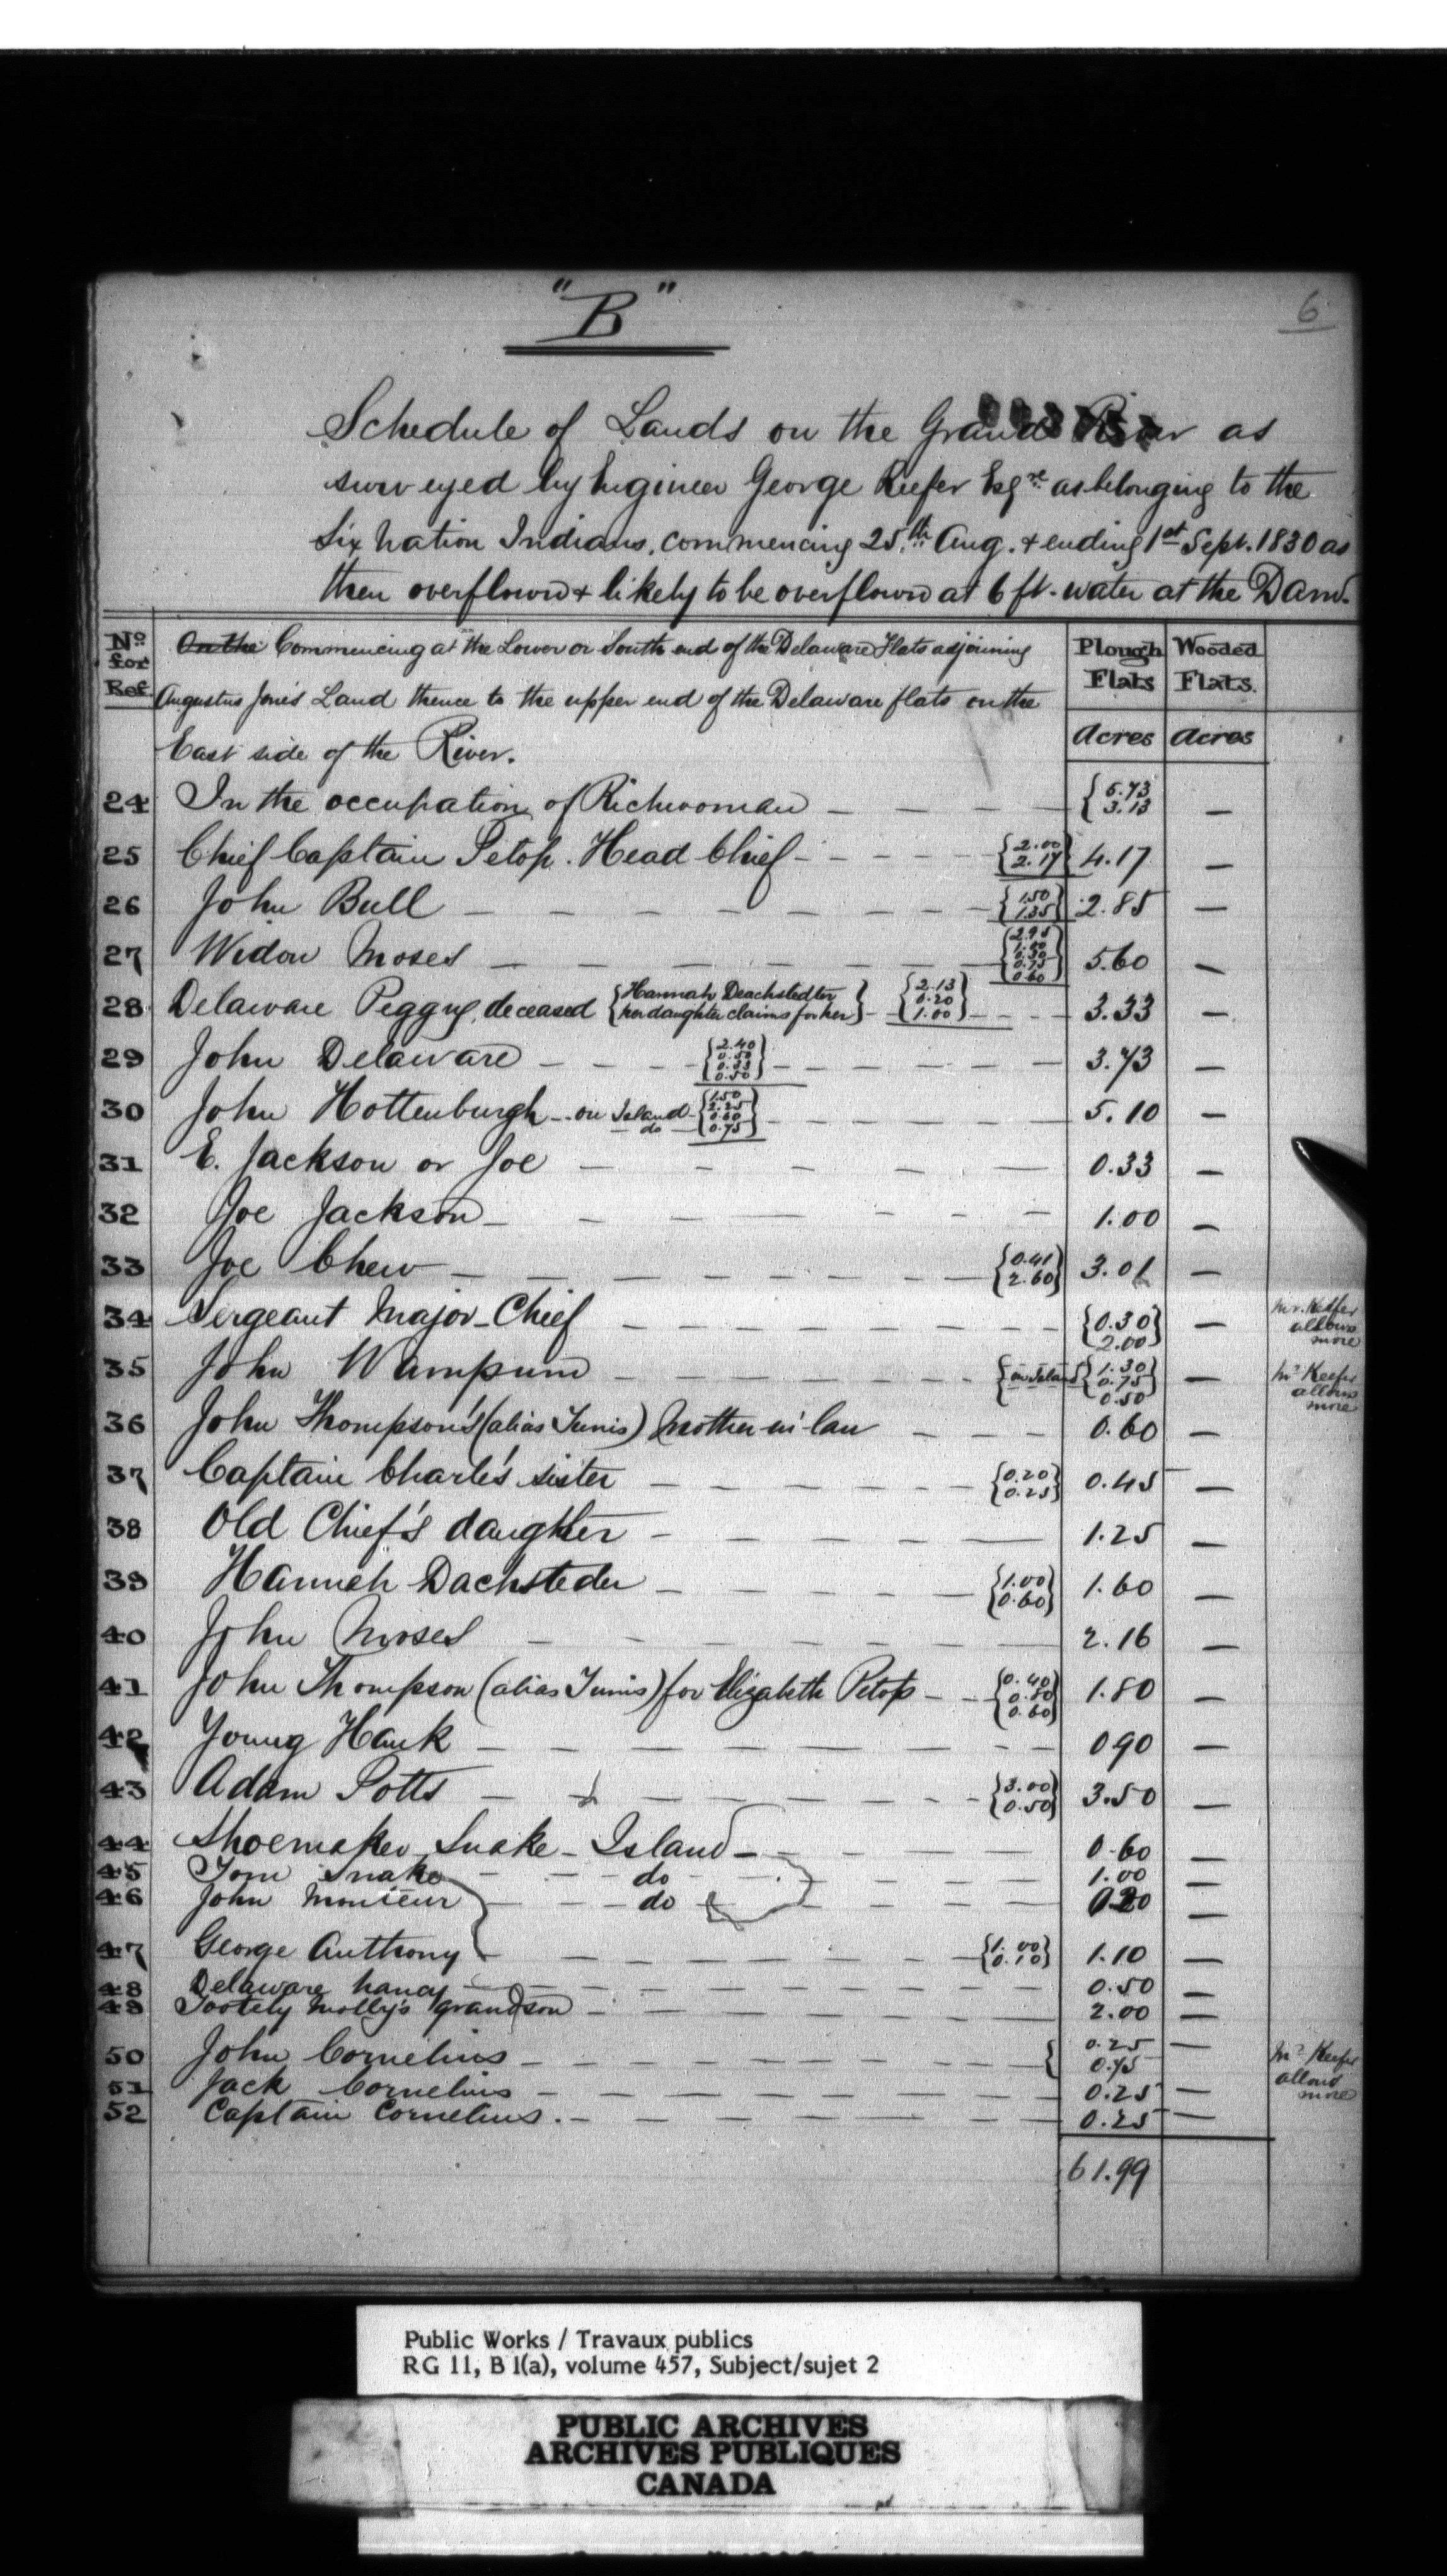 "B"
6
Schedule of Lands on the Grand River as
surveyed by Engineer George Keefer Esqre as belonging to the
Six Nation Indians, commencing 25th Aug. & ending 1st Sept. 1830 as
then overflown & likely to be overflown at 6 ft. water at the Dam.
No for Ref. On the Commencing at the Lower or South end of the Delaware Flats adjoining Plough Flats Wooded Flats.
Augustus Jones Land thence to the upper end of the Delaware flats on the
East side of the River. Acres Acres
24 In the occupation of Richwoman — — — { 5.73 3.13 —
25 Chief Captain Petop. Head Chief - - - - - {2.00 2.17} 4.17 —
26 John Bull — — — — — — — {1.50 1.35} 2.85 —
27 Widow Moses — — — — — — {2.95 1.00 0.30 0.75 0.60 5.60 —
28 Delaware Peggy, deceased {Hannah Deachstedter her daughter claims for her} - {2.13 0.20 1.00} - - - - 3.33 —
29 John Delaware — — — {2.40 0.50 0.33 0.50} — — — — — 3.73 —
30 John Hottenburgh - on Island - do - {1.50 2.25 0.60 0.75} — — — — 5.10 —
31 E. Jackson or Joe — — — — — 0.33 —
32 Joe Jackson — — — — — — — 1.00 —
33 Joe Chew — — — — — — — {0.41 2.60} 3.01 —
34 Sergeant Major - Chief — — — — — — — {0.30 2.00} — Mr. Keefer allows more
35 John Wampum — — — — — — {on Island {1.30 0.75} 0.50 — Mr. Keefer allows more
36 John Thompson's (alias Tunis) Mother-in-law — — — 0.60 —
37 Captain Charle's sister — — — — — {0.20 0.25} 0.45 —
38 Old Chief's daughter — — — — — 1.25 —
39 Hannah Dachsteder — — — — — {1.00 0.60} 1.60 —
40 John Moses — — — — — — 2.16 —
41 John Thompson (alias Tunis) for Elizabeth Petop - - {0.40 0.80 0.60} 1.80 —
42 Young Hank — — — — — — — 0 90 —
43 Adam Potts — — — — — — {3.00 0.50} 3.50 —
44 Shoemaker Snake - Island — — — — 0.60 —
45 Tom Snake — — do — — — — 1.00 —
46 John Monteur — — do — — — —
47 George Anthony — — — — — — {1.00 0.10} 1.10 —
48 Delaware Nancy — — — — — — — 0.50 —
49 Tootely Molly's grandson — — — — — — 2.00 —
50 John Cornelius — — — — — — — { 0.25 0.75 — Mr. Keefer allows more
51 Jack Cornelius — — — — — — — 0.25 —
52 Captain Cornelius. — — — — — — — 0.25 —
61.99
Public Works / Travaux publics
RG 11, B 1(a), volume 457, Subject/sujet 2
PUBLIC ARCHIVES
ARCHIVES PUBLIQUES
CANADA